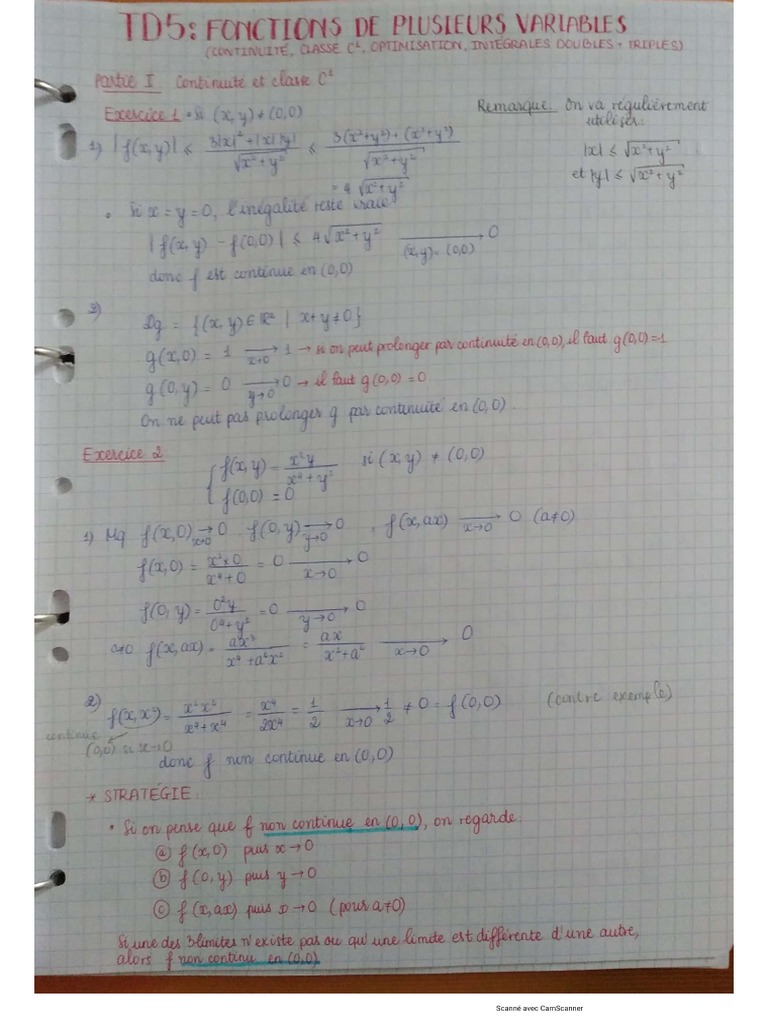 TD5: FONCTIONS DE PLUSIEURS VARIABLES
(CONTINUITÉ, CLASSE C¹, OPTIMISATION, INTÉGRALES DOUBLES + TRIPLES)
Partie I Continuité et classe C¹
Exercice 1 • Si (x,y) ≠ (0,0)
Remarque: On va régulièrement
utiliser:
|x| ≤ √(x²+y²)
et |y| ≤ √(x²+y²)
1) |f(x,y)| ≤ (3|x|²+|x||y|)/√(x²+y²) ≤ (3(x²+y²)+(x²+y²))/√(x²+y²)
= 4√(x²+y²)
• Si x = y = 0, l'inégalité reste vraie
|f(x,y) - f(0,0)| ≤ 4√(x²+y²) ⟶ 0
(x,y) → (0,0)
donc f est continue en (0,0)
2)
Dg = {(x,y) ∈ ℝ² | x+y ≠ 0}
g(x,0) = 1 ⟶ 1 → si on peut prolonger par continuité en (0,0), il faut g(0,0)=1
x→0
g(0,y) = 0 ⟶ 0 → il faut g(0,0) = 0
y→0
On ne peut pas prolonger g par continuité en (0,0).
Exercice 2
{ f(x,y) = x²y/(x⁴+y²) si (x,y) ≠ (0,0)
f(0,0) = 0
1) Mq f(x,0) ⟶ 0 , f(0,y) ⟶ 0 , f(x,ax) ⟶ 0 (a≠0)
x→0 y→0 x→0
f(x,0) = (x²×0)/(x⁴+0) = 0 ⟶ 0
x→0
f(0,y) = 0²y/(0⁴+y²) = 0 ⟶ 0
y→0
a≠0 f(x,ax) = ax³/(x⁴+a²x²) = ax/(x²+a²) ⟶ 0
x→0
2) f(x,x²) = x²x²/(x⁴+x⁴) = x⁴/2x⁴ = 1/2 ⟶ 1/2 ≠ 0 = f(0,0) (contre exemple)
x→0
continue
(0,0) si x→0
donc f non continue en (0,0)
* STRATÉGIE:
• Si on pense que f non continue en (0,0), on regarde:
ⓐ f(x,0) puis x→0
ⓑ f(0,y) puis y→0
ⓒ f(x,ax) puis x→0 (pour a≠0)
Si une des 3 limites n'existe pas ou qu'une limite est différente d'une autre,
alors f non continu en (0,0)
Scanné avec CamScanner